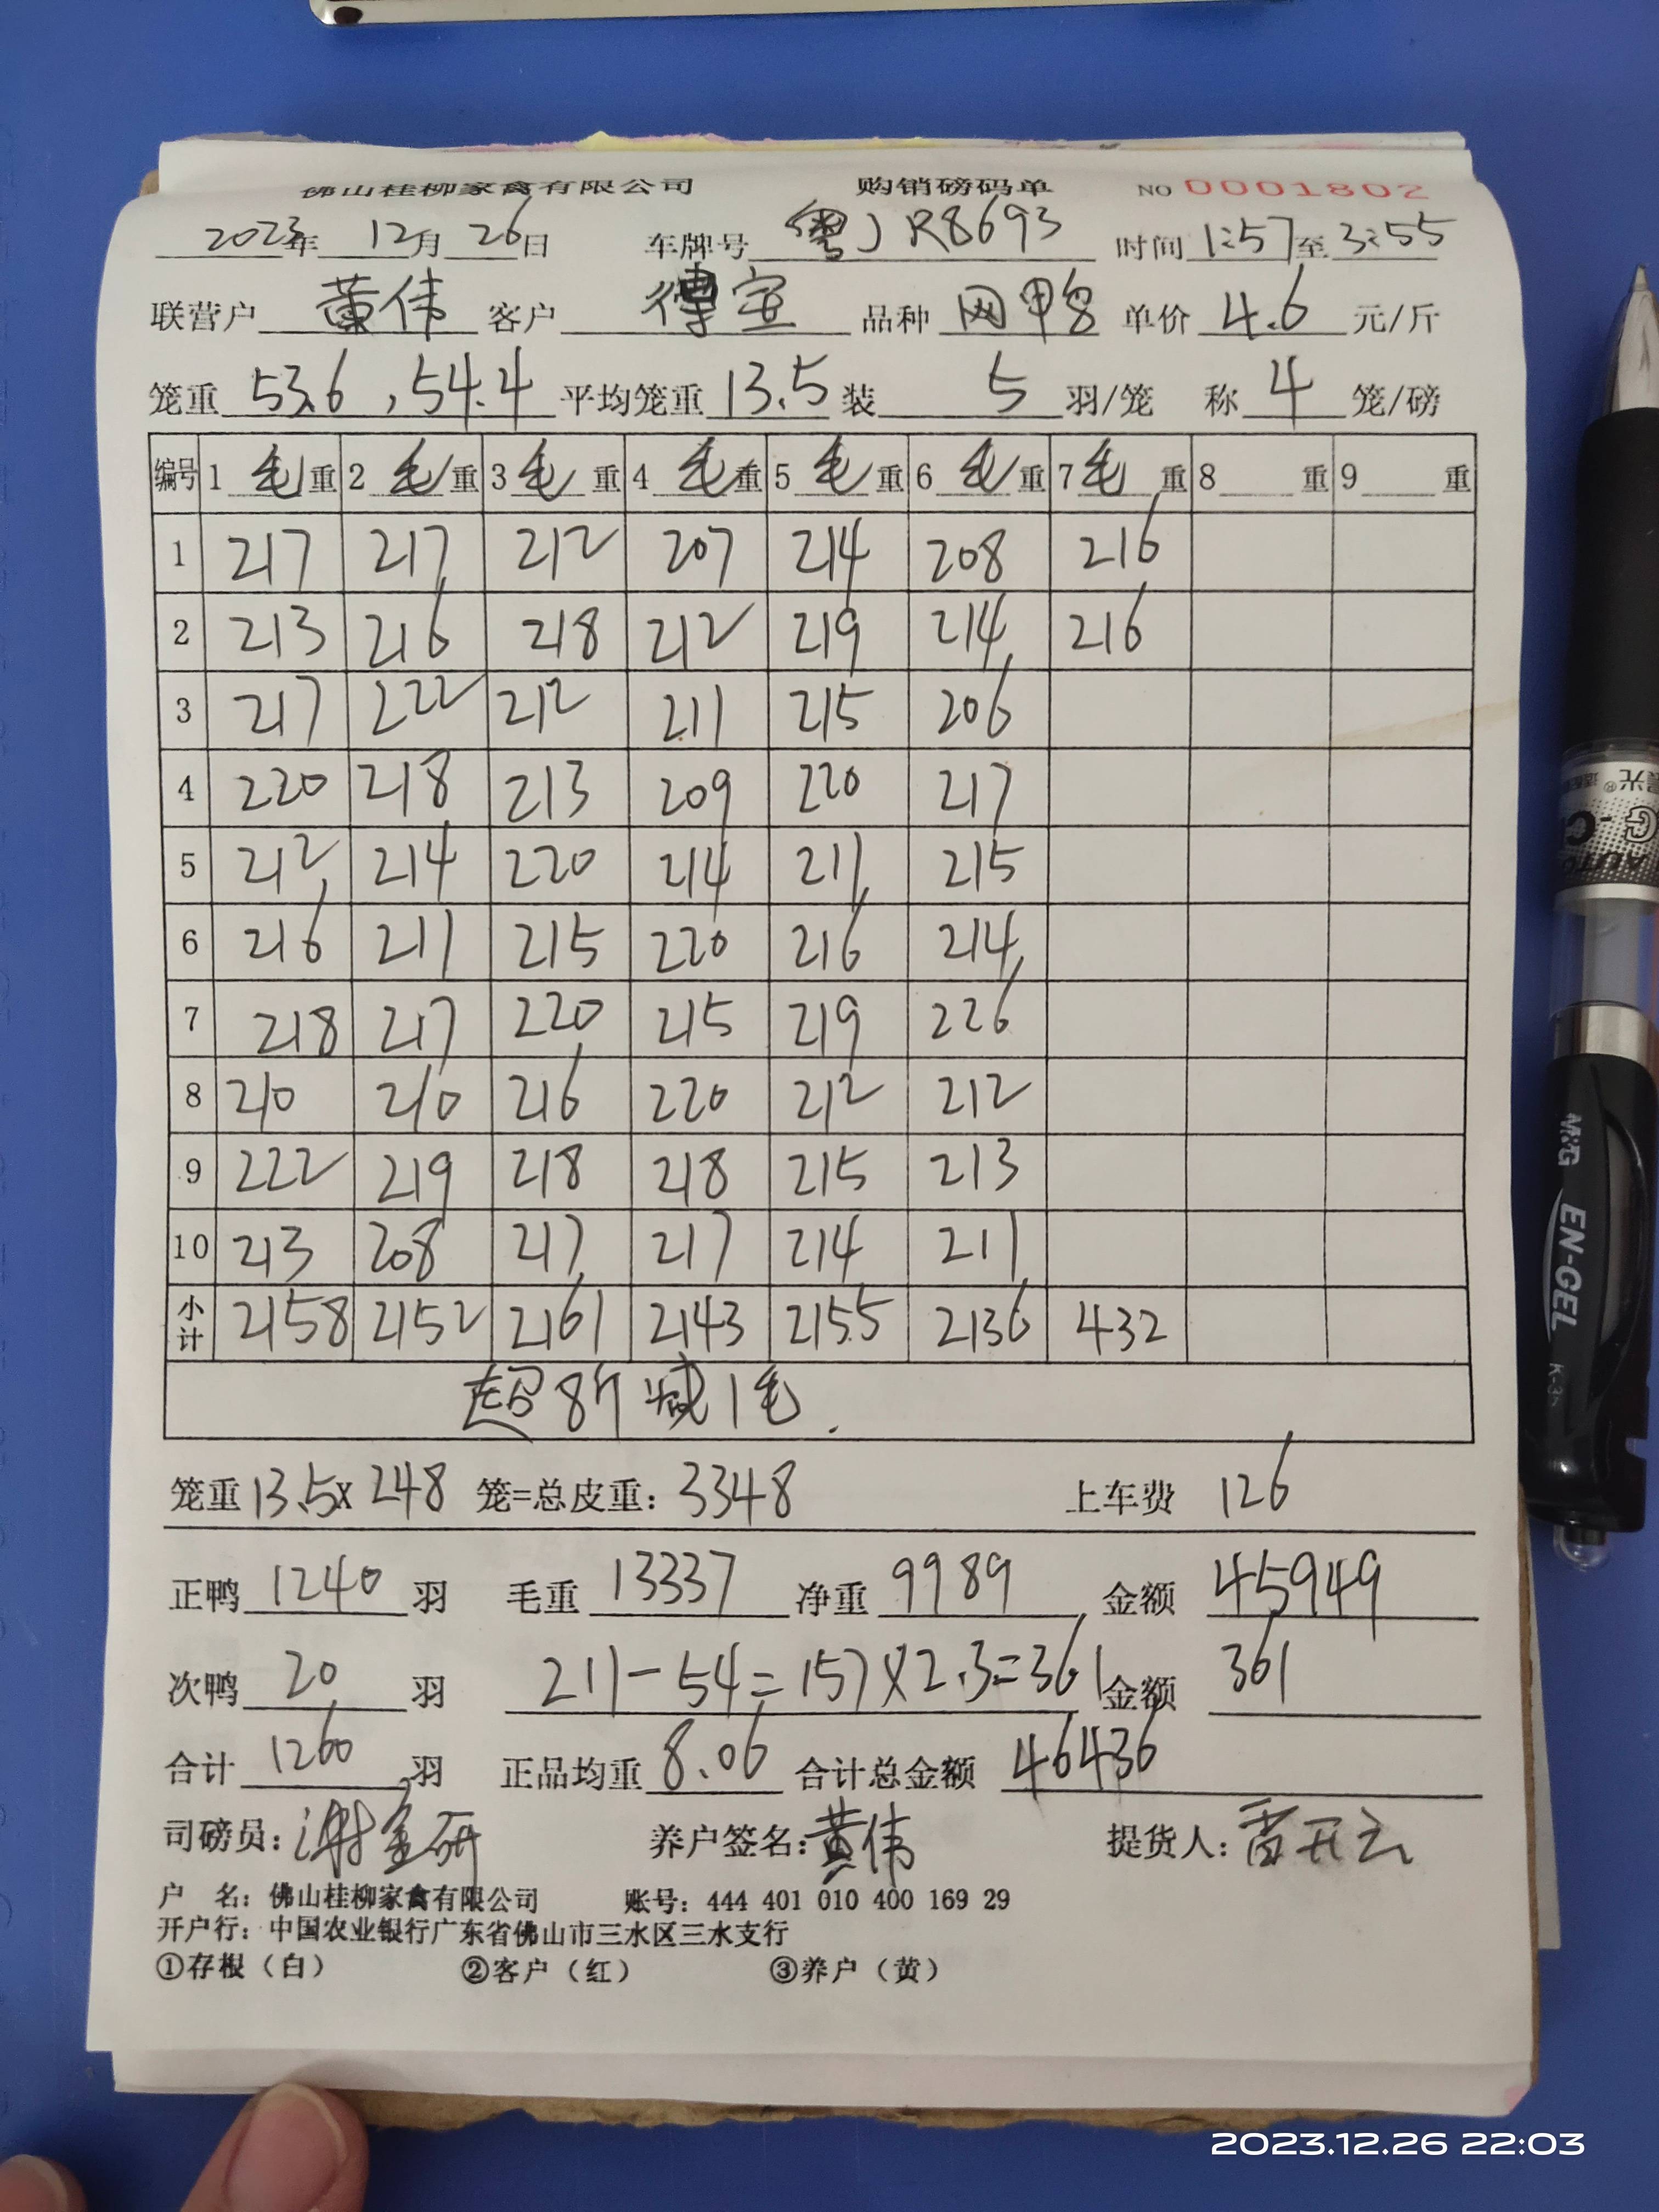 佛山桂柳家禽有限公司 购销磅码单 NO 0001802
2023年 12月 26日 车牌号 粤J R8693 时间 1:57至3:55
联营户 黄伟 客户 品种 单价 4.6 元/斤
笼重 53.6,54.4 平均笼重 13.5 装 5 羽/笼 称 4 笼/磅
编号 1 毛重 2 毛重 3 毛重 4 毛重 5 毛重 6 毛重 7 毛重 8 重 9 重
1 217 217 212 207 214 208 216
2 213 216 218 212 219 214 216
3 217 222 212 211 215 206
4 220 218 213 209 220 217
5 212 214 220 214 211 215
6 216 211 215 220 216 214
7 218 217 220 215 219 226
8 210 210 216 220 212 212
9 222 219 218 218 215 213
10 213 208 217 217 214 211
小计 2158 2152 2161 2143 2155 2136 432
超8斤减1毛.
笼重13.5X 248 笼=总皮重: 3348 上车费 126
正鸭 1240 羽 毛重 13337 净重 9989 金额 45949
次鸭 20 羽 211-54=157X2.3=361 金额 361
合计 1260 羽 正品均重 8.06 合计总金额 46436
司磅员: 养户签名:黄伟 提货人:
户 名: 佛山桂柳家禽有限公司 账号: 444 401 010 400 169 29
开户行: 中国农业银行广东省佛山市三水区三水支行
①存根(白) ②客户(红) ③养户(黄)
晨光
M&G EN-GEL K-35
2023.12.26 22:03